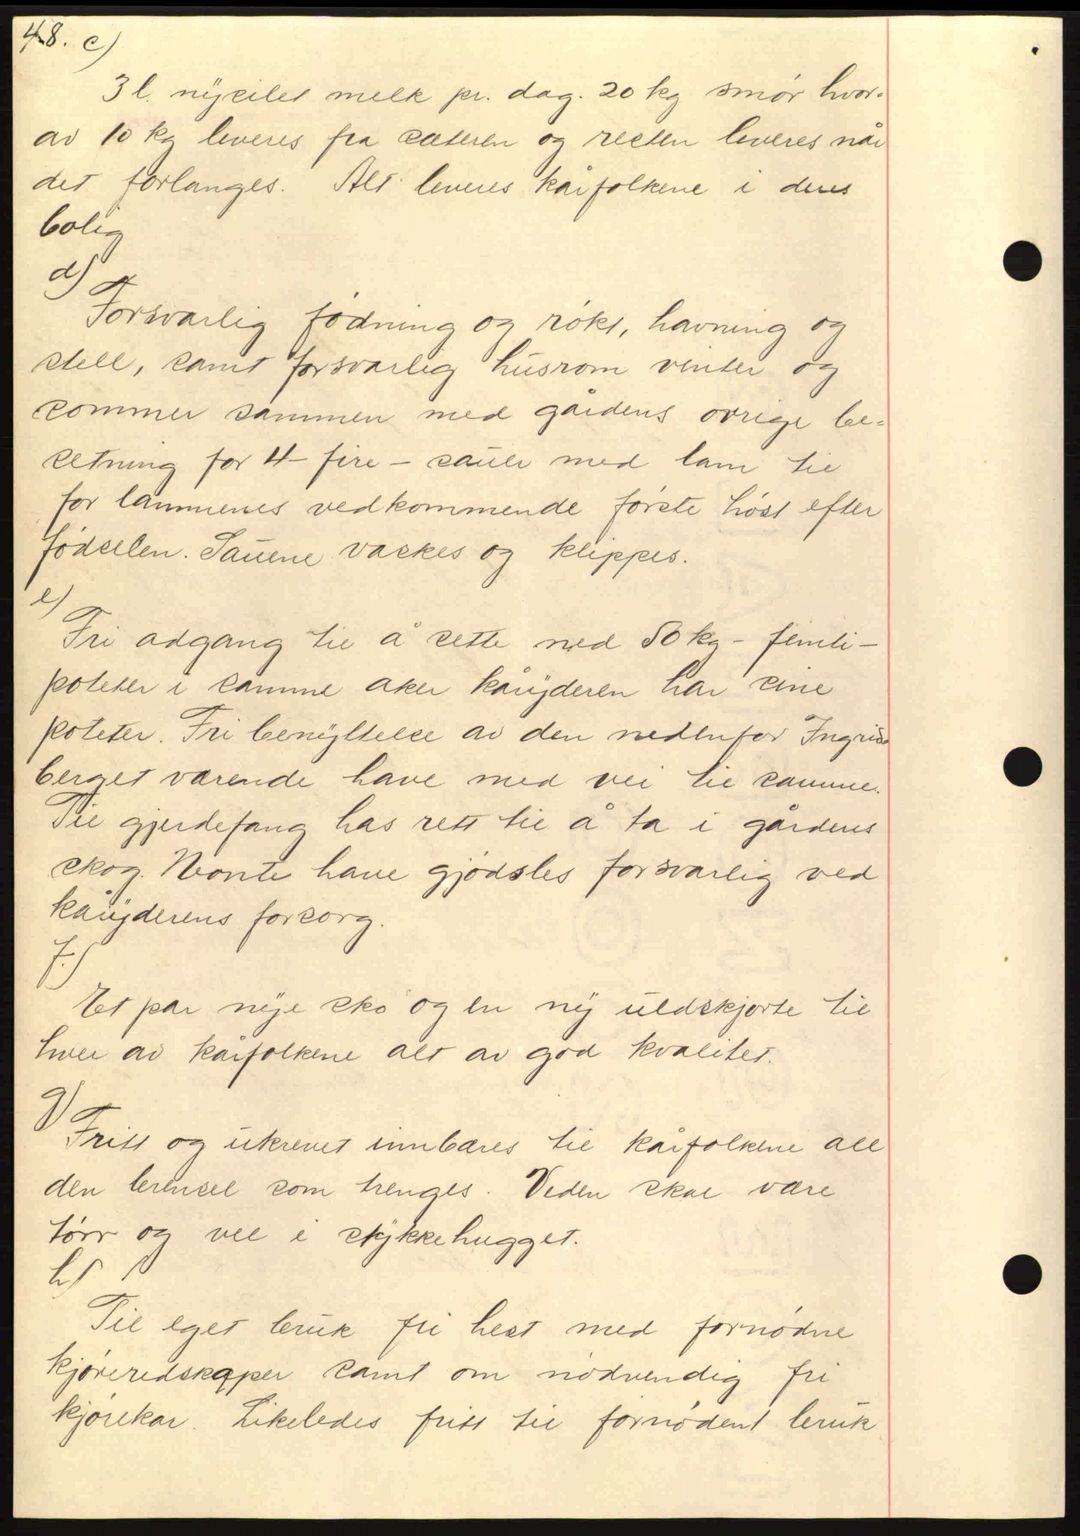 48. c)
3 l. nysilet melk pr. dag. 20 kg smør hvor-
av 10 kg leveres fra sæteren og resten leveres når
det forlanges. Alt leveres kårfolkene i deres
bolig
d)
Forsvarlig fødning og røkt, havning og
stell, samt forsvarlig husrom vinter og
sommer sammen med gårdens øvrige be-
setning for 4 - fire - sauer med lam til
for lammenes vedkommende første høst efter
fødselen. Sauene vaskes og klippes.
e)
Fri adgang til å sette ned 50 kg - femti -
poteter i samme aker kåryderen har sine
poteter. Fri benyttelse av den nedenfor Ingrids
berget værende have med vei til samme.
Til gjerdefang has rett til å ta i gårdens
skog. Nevnte have gjødsles forsvarlig ved
kåryderens forsorg.
f.)
Et par nye sko og en ny uldskjorte til
hver av kårfolkene alt av god kvalitet.
g)
Fritt og ukrevet innbæres til kårfolkene all
den brensel som trenges. Veden skal være
tørr og vel i stykkehugget.
h)
Til eget bruk fri hest med fornødne
kjøreredskaper samt om nødvendig fri
kjørekar. Likeledes fritt til fornødent bruk